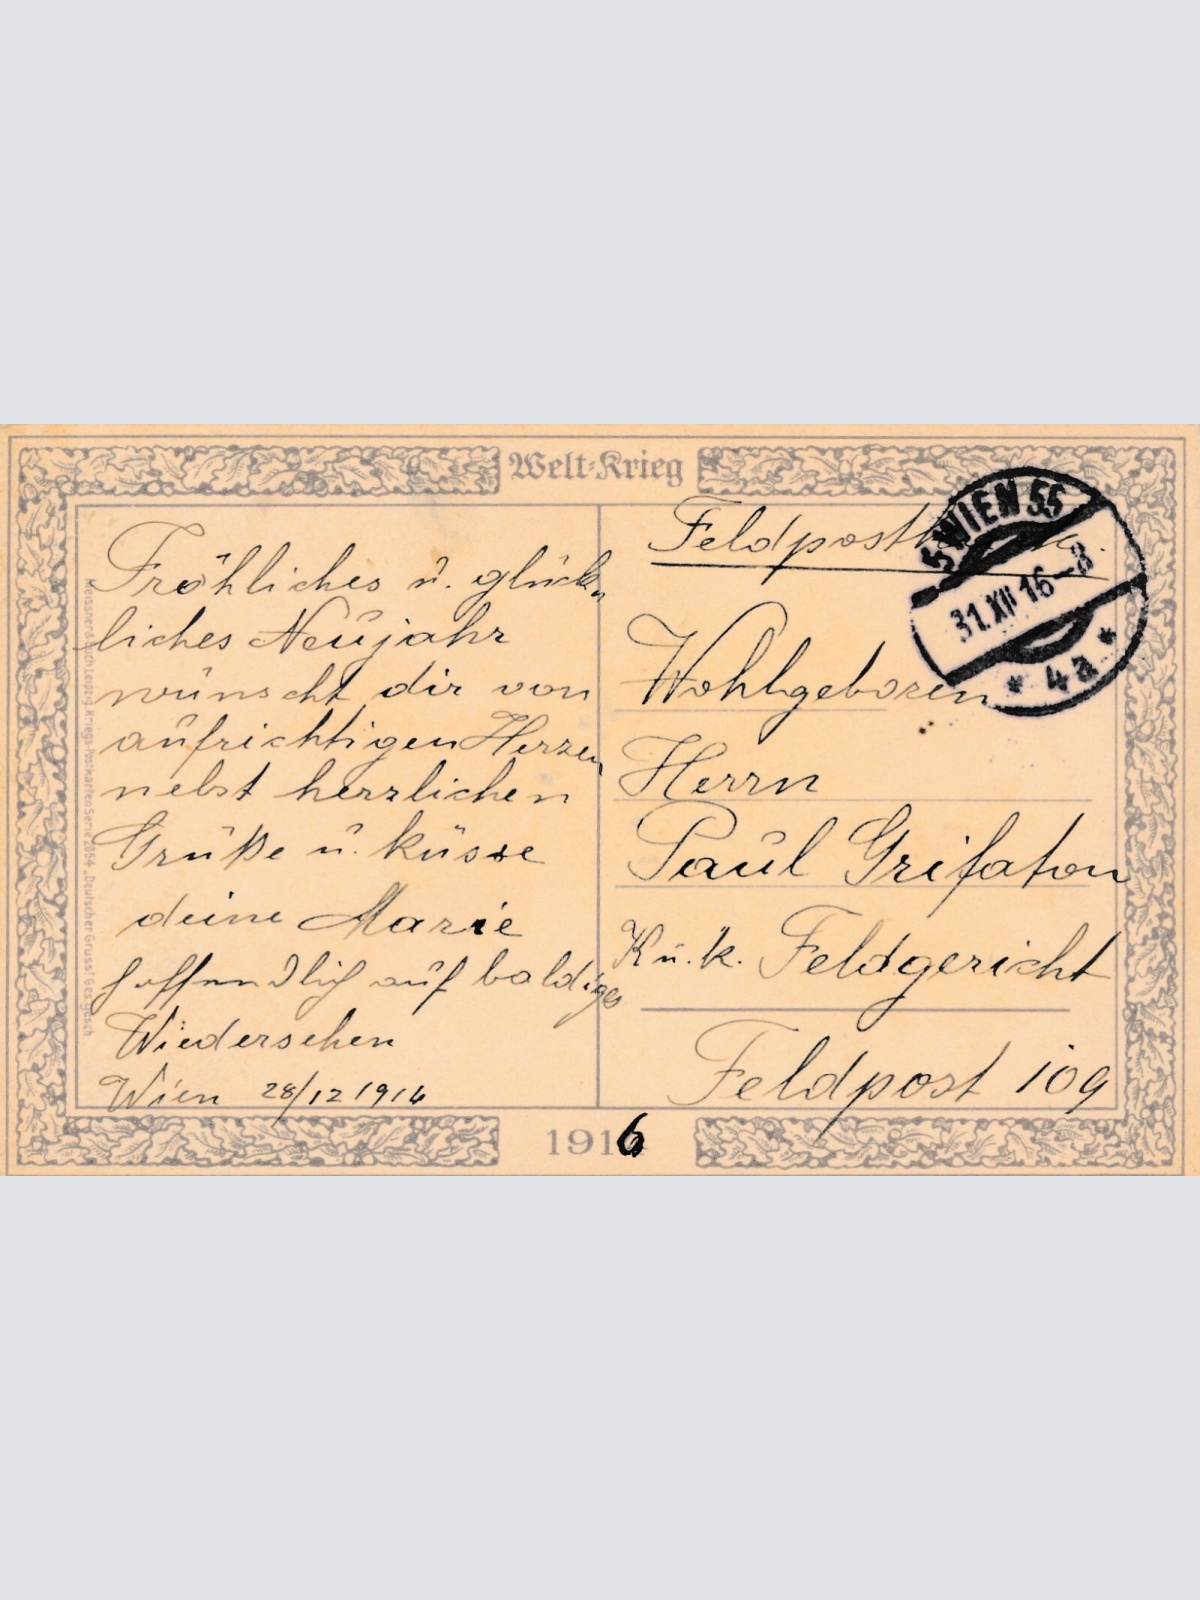 Welt-Krieg
Fröhliches u. glück-
liches Neujahr
wünscht dir von
aufrichtigen Herzen
nebst herzlichen
Grüße u. küsse
deine Marie
hoffendlich auf baldiges
Wiedersehen
Wien 28/12 1916
Feldpost
5 WIEN 55
31.XII 16-8
* 4a *
Wohlgeboren
Herrn
Paul Grifaton
K u. k. Feldgericht
Feldpost 109
1916
Meissner & Buch Leipzig Kriegs-Postkarten Serie 2054 „Deutscher Gruss“